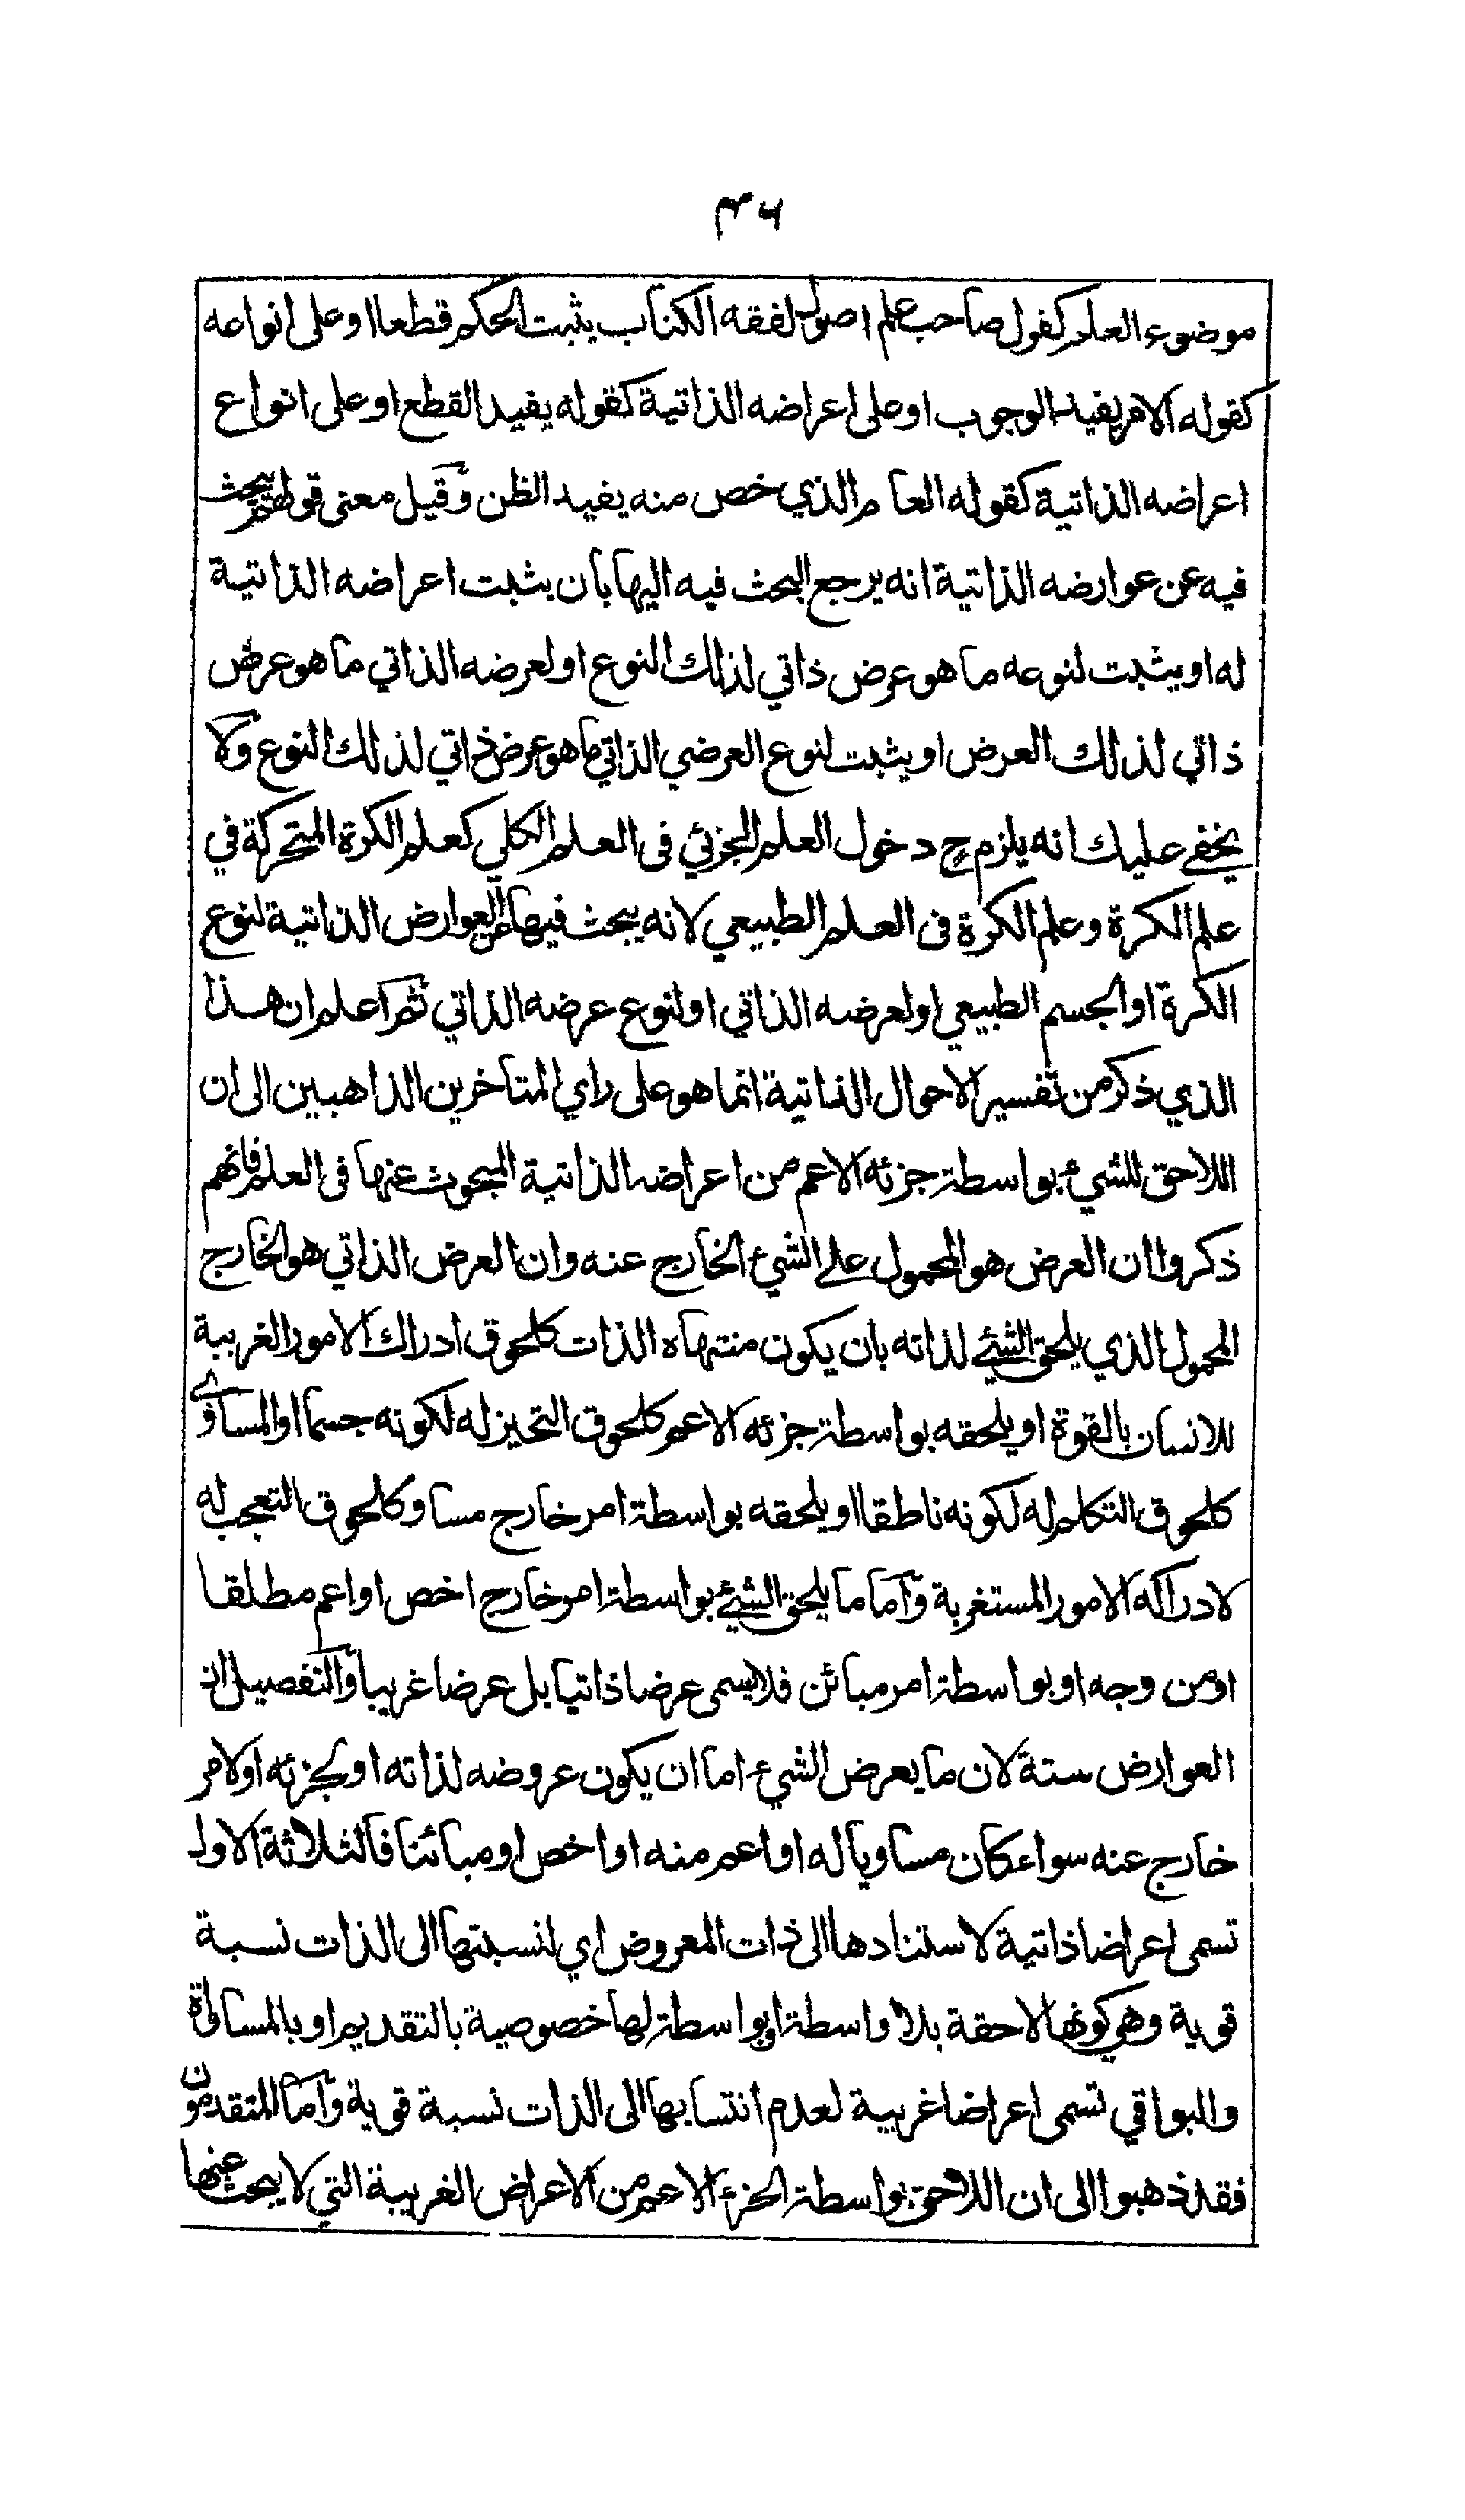 ٤٦
موضوع العلم كقول صاحب علم اصول الفقه الكتاب يثبت الحكم قطعا او على انواعه
كقوله الامر يفيد الوجوب او على اعراضه الذاتية كقوله يفيد القطع او على انواع
اعراضه الذاتية كقوله العام الذي خص منه يفيد الظن وقيل معنى قولهم يبحث
فيه عن عوارضه الذاتية انه يرجع البحث فيه اليها بان يثبت اعراضه الذاتية
له او يثبت لنوعه ما هو عرض ذاتي لذلك النوع او لعرضه الذاتي ما هو عرض
ذاتي لذلك العرض او يثبت لنوع العرضي الذاتي ما هو عرض ذاتي لذلك النوع ولا
يخفى عليك انه يلزم ح دخول العلم الجزئي فى العلم الكلي كعلم الكرة المتحركة في
علم الكرة وعلم الكرة فى العلم الطبيعي لانه يبحث فيها عن العوارض الذاتية لنوع
الكرة او الجسم الطبيعي او لعرضه الذاتي او لنوع عرضه الذاتي ثم اعلم ان هذا
الذي ذكر من تفسير الاحوال الذاتية انما هو على راي المتاخرين الذاهبين الى ان
اللاحق للشيء بواسطة جزئه الاعم من اعراضه الذاتية المبحوث عنها فى العلم فانهم
ذكروا ان العرض هو المحمول على الشيء الخارج عنه وان العرض الذاتي هو الخارج
المحمول الذي يلحق الشئے لذاته بان يكون منتهاه الذات كلحوق ادراك الامور الغريبة
للانسان بالقوة او يلحقه بواسطة جزئه الاعم كلحوق التحيز له لكونه جسما او المساوي
كلحوق التكلم له لكونه ناطقا او يلحقه بواسطة امر خارج مساو كلحوق التعجب له
لادراكه الامور المستغربة واما ما يلحق الشئے بواسطة امر خارج اخص او اعم مطلقا
او من وجه او بواسطة امر مبائن فلا يسمى عرضا ذاتيا بل عرضا غريبا والتفصيل ان
العوارض ستة لان ما يعرض الشيء اما ان يكون عروضه لذاته او لجزئه او لامر
خارج عنه سواء كان مساويا له او اعم منه او اخص او مبائنا فالثلاثة الاول
تسمى اعراضا ذاتية لاستنادها الى ذات المعروض اي لنسبتها الى الذات نسبة
قوية وهي كونها لاحقة بلا واسطة او بواسطة لها خصوصية بالتقديم او بالمساواة
والبواقي تسمى اعراضا غريبة لعدم انتسابها الى الذات نسبة قوية واما المتقدمون
فقد ذهبوا الى ان اللاحق بواسطة الجزء الاعم من الاعراض الغريبة التي لا يبحث عنها